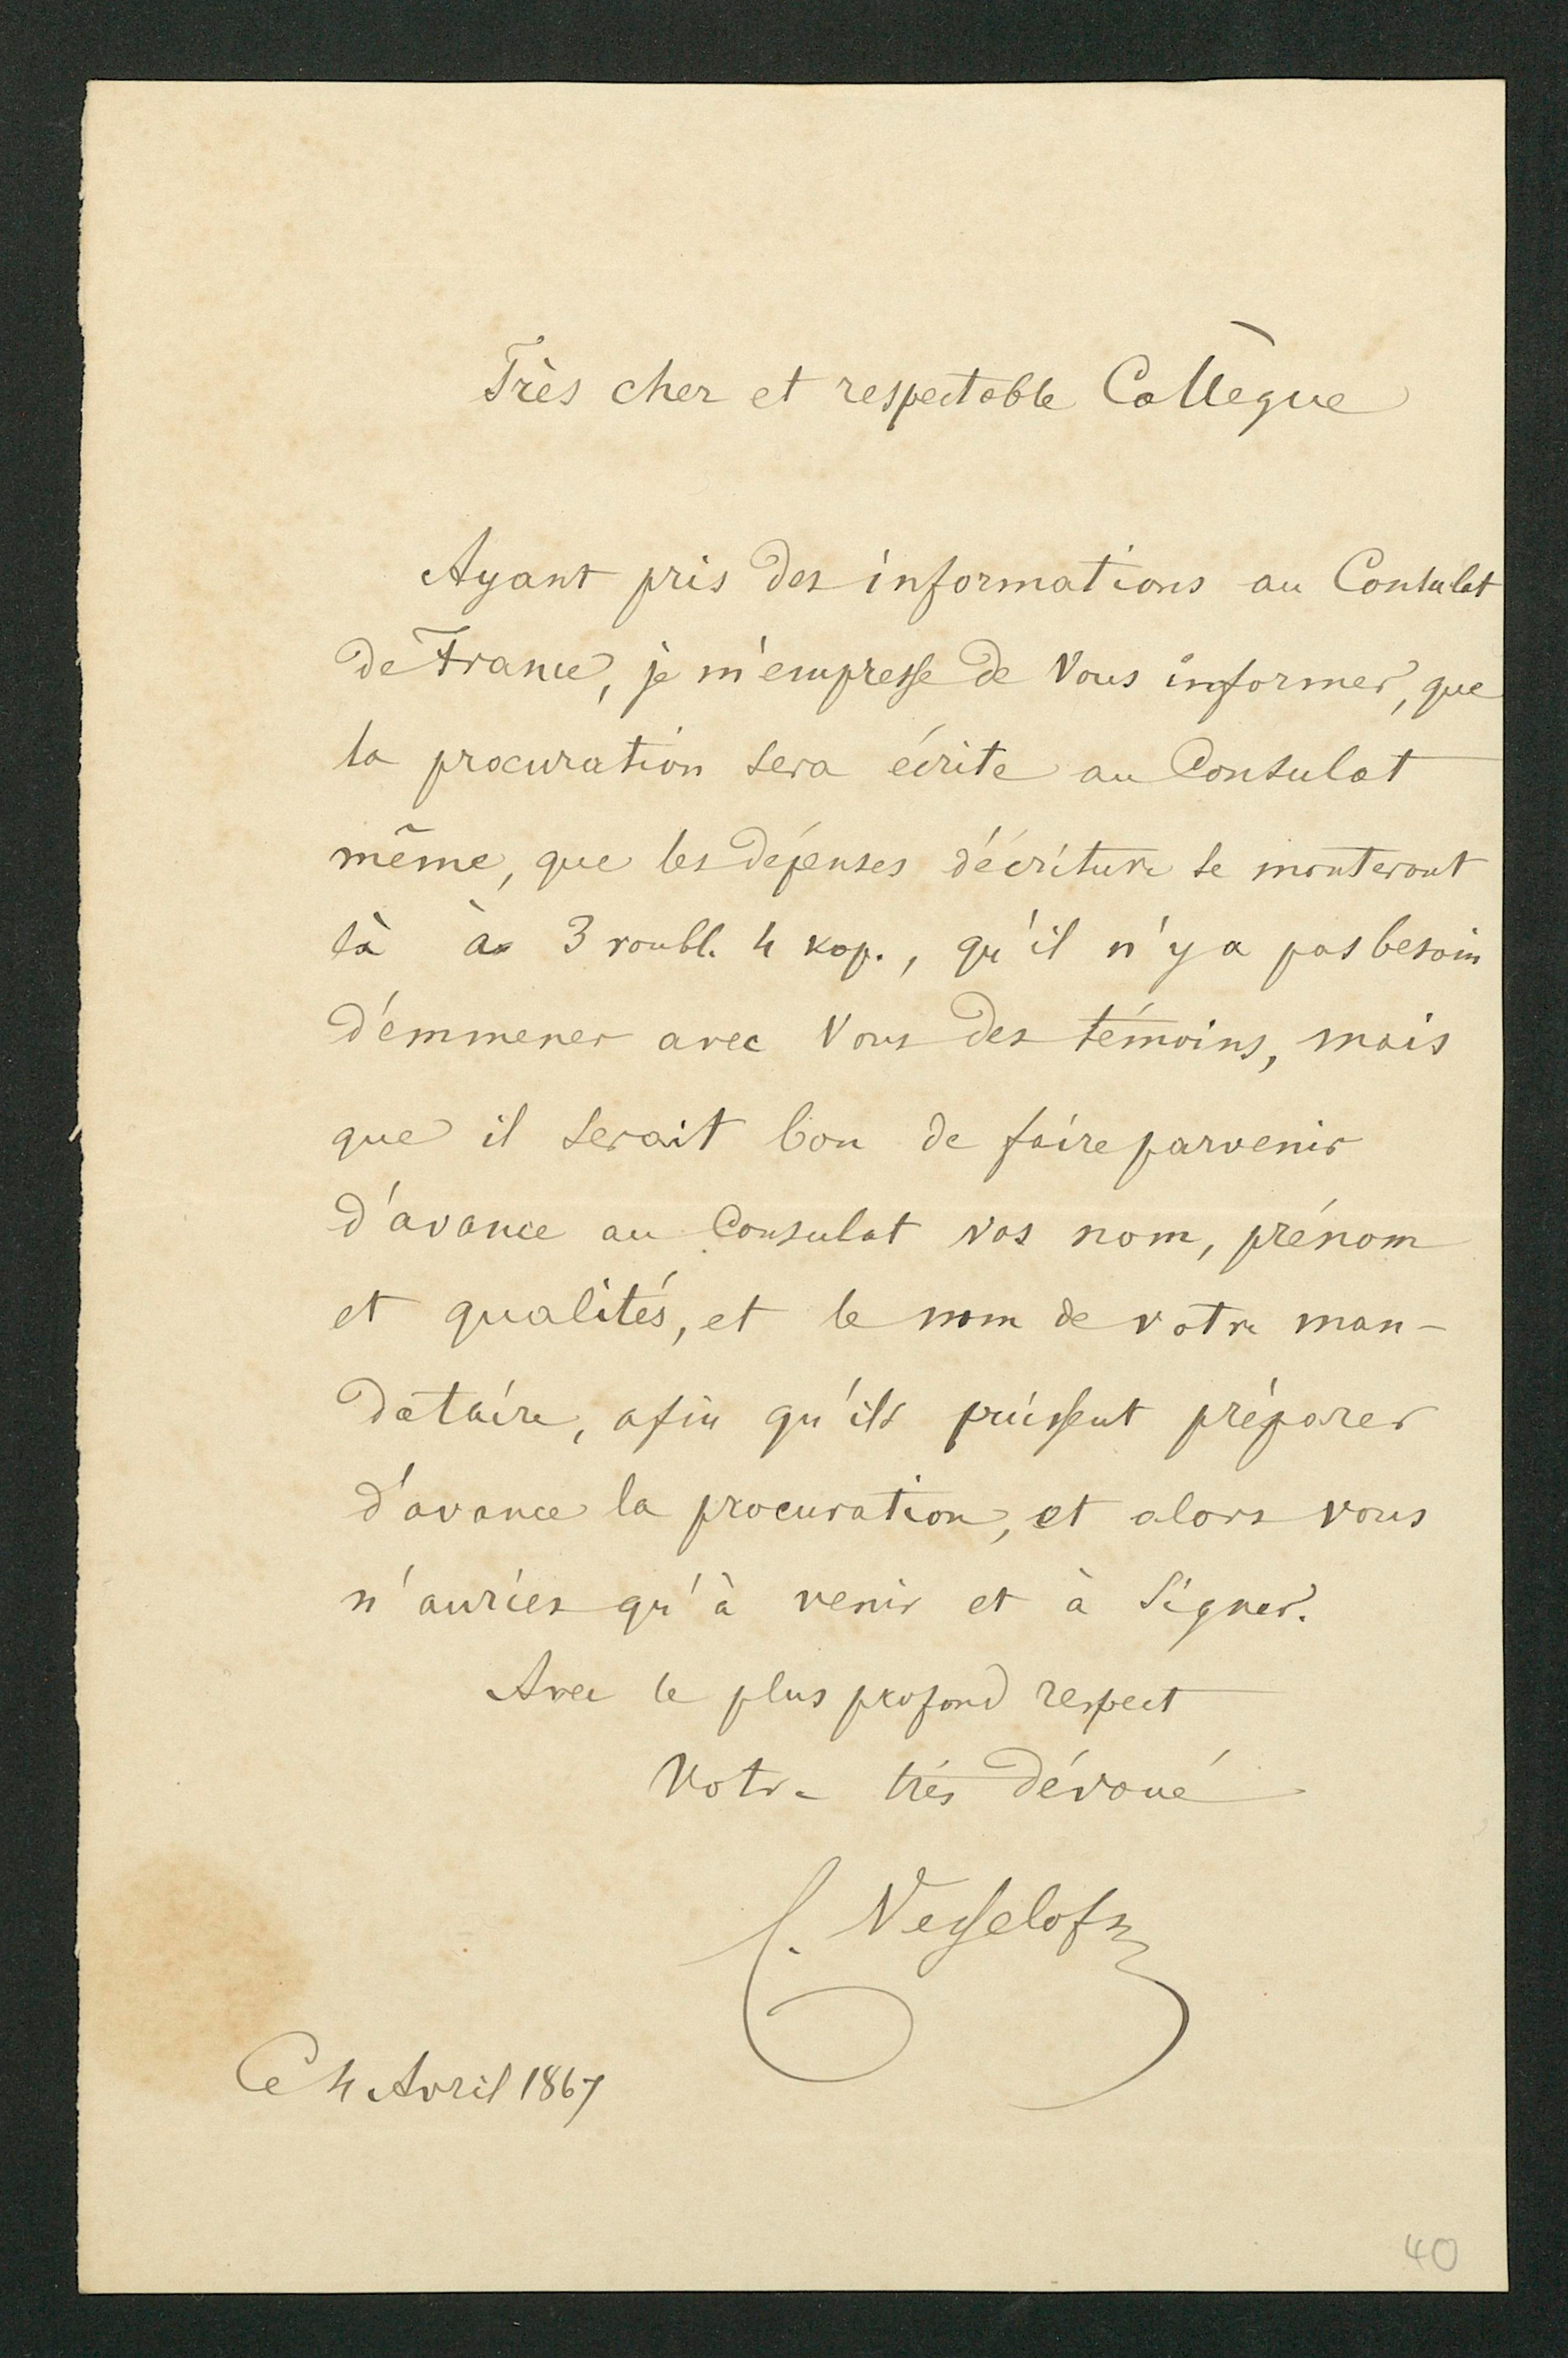 Très cher et respectable Collègue
Ayant pris des informations au Consulat
de France, je m'empresse de Vous informer, que
la procuration sera écrite au Consulat
même, que les dépenses d'écriture se monteront
là à 3 roubl. 4 kop., qu'il n'y a pas besoin
d'emmener avec Vous des témoins, mais
que il serait bon de faire parvenir
d'avance au Consulat vos nom, prénom
et qualités, et le nom de votre man-
dataire, afin qu'ils puissent préparer
d'avance la procuration, et alors vous
n'auriez qu'à venir et à signer.
Avec le plus profond respect
Votre très dévoué
C. Vesselofs
Ce 4 Avril 1867
40